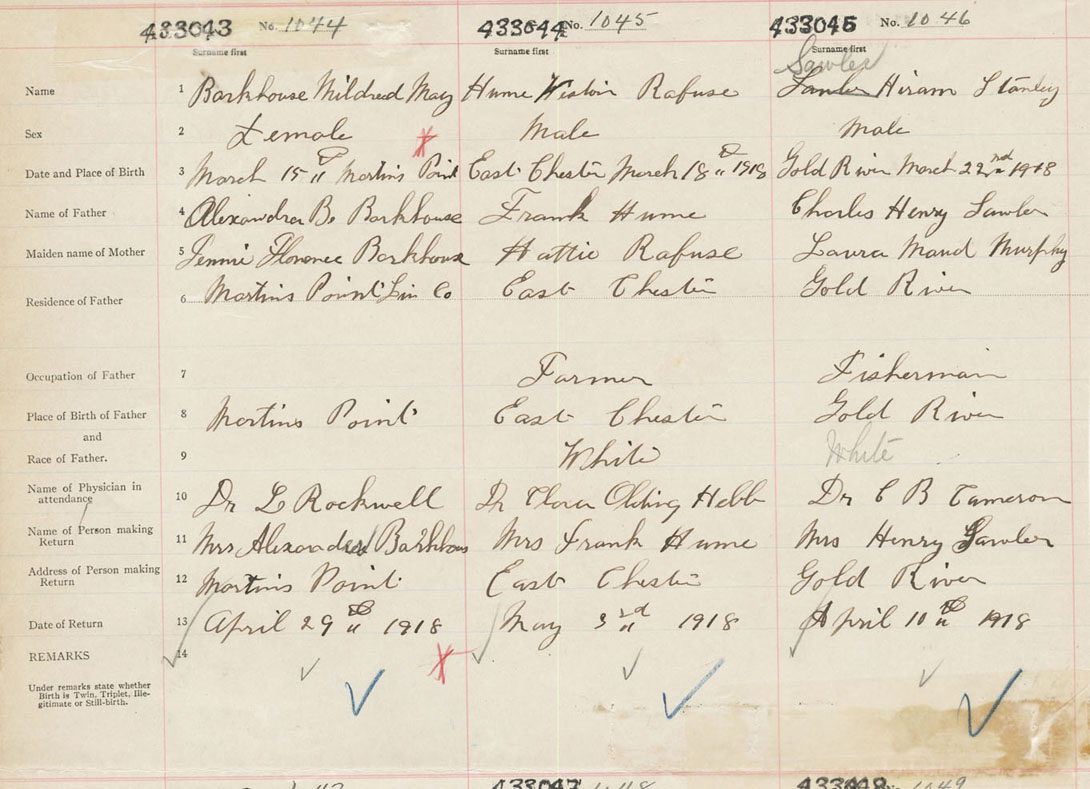 433043 No. 1044 433044 No. 1045 433045 No. 1046
Surname first Surname first Surname first
Sawler
Name 1 Barkhouse Mildred May Hume Weston Rafuse Sawler Hiram Stanley
Sex 2 Female Male Male
Date and Place of Birth 3 March 15th Martins Point East Chester March 18th 1918 Gold River March 22nd 1918
Name of Father 4 Alexandra B. Barkhouse Frank Hume Charles Henry Sawler
Maiden name of Mother 5 Jennie Florence Barkhouse Hattie Rafuse Laura Maud Murphy
Residence of Father 6 Martins Point Lun Co East Chester Gold River
Occupation of Father 7 Farmer Fisherman
Place of Birth of Father 8 Martins Point East Chester Gold River
and
Race of Father. 9 White White
Name of Physician in
attendance 10 Dr L Rockwell Dr Clara Olding Hebb Dr C B Cameron
Name of Person making
Return 11 Mrs Alexandra Barkhous Mrs Frank Hume Mrs Henry Sawler
Address of Person making
Return 12 Martins Point East Chester Gold River
Date of Return 13 April 29th 1918 May 3rd 1918 April 10th 1918
REMARKS 14
Under remarks state whether
Birth is Twin, Triplet, Ille-
gitimate or Still-birth.
433047 1048 433048 No. 1049